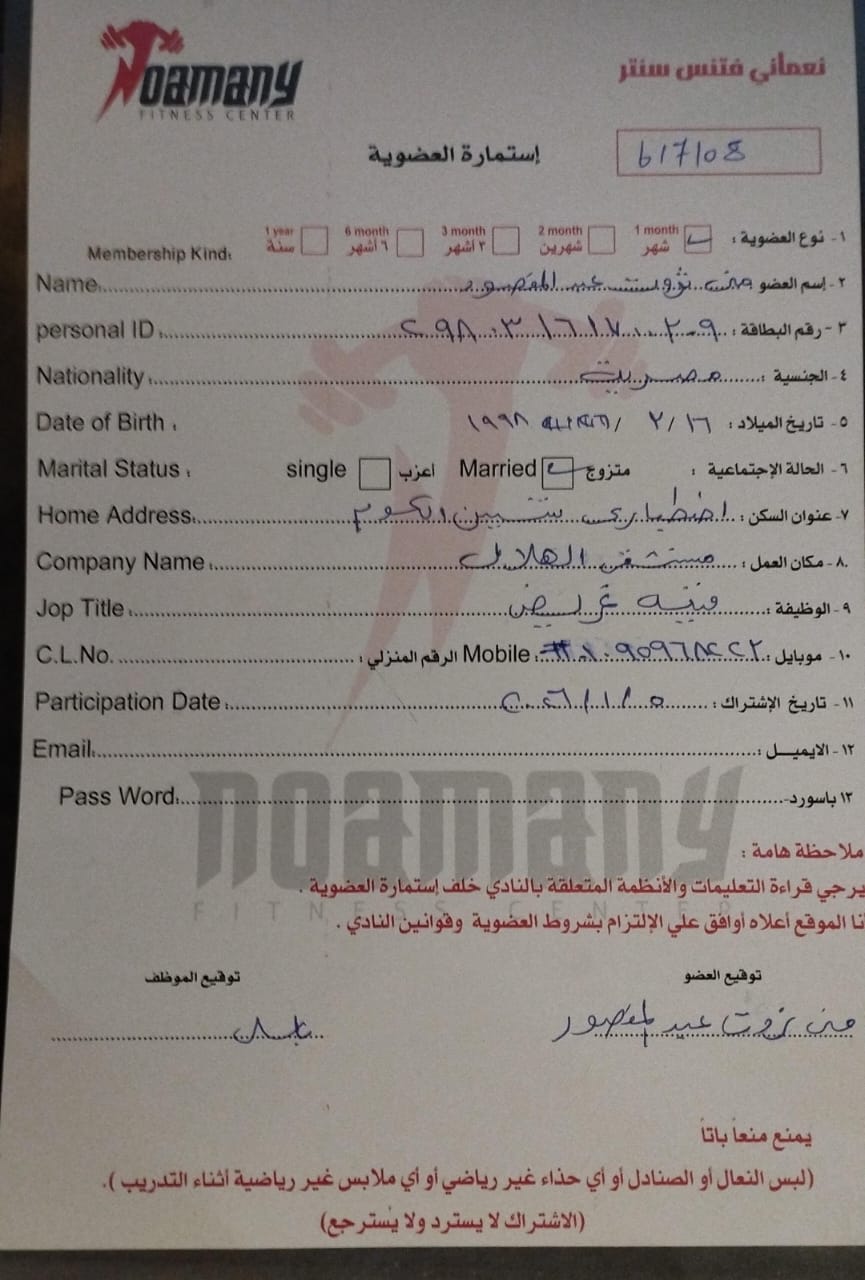 NOAMANY
FITNESS CENTER
نعماني فتنس سنتر
إستمارة العضوية
617108
١- نوع العضوية : 1 month شهر 2 month شهرين 3 month ٣ أشهر 6 month ٦ أشهر 1 year سنة Membership Kind:
٢- إسم العضو منى ثروت عبد المقصود Name
٣- رقم البطاقة : personal ID
٤- الجنسية : مصرية Nationality
٥- تاريخ الميلاد : ١٦ / ٣ / ١٩٩٨ Date of Birth :
٦- الحالة الإجتماعية : متزوج Married اعزب single Marital Status :
٧- عنوان السكن : شبين الكوم Home Address
٨- مكان العمل : مستشفى الهلال Company Name :
٩- الوظيفة : فنية تمريض Jop Title :
١٠- موبايل : Mobile : الرقم المنزلي : C.L.No.
١١- تاريخ الإشتراك : Participation Date :
١٢- الايميل : Email:
١٣ باسورد- Pass Word:
NOAMANY
FITNESS CENTER
ملاحظة هامة :
يرجي قراءة التعليمات والأنظمة المتعلقة بالنادي خلف إستمارة العضوية .
أنا الموقع أعلاه أوافق علي الإلتزام بشروط العضوية وقوانين النادي .
توقيع العضو توقيع الموظف
منى ثروت عبد المقصود
يمنع منعاً باتاً
(لبس النعال أو الصنادل أو أي حذاء غير رياضي أو أي ملابس غير رياضية أثناء التدريب ).
(الاشتراك لا يسترد ولا يسترجع)